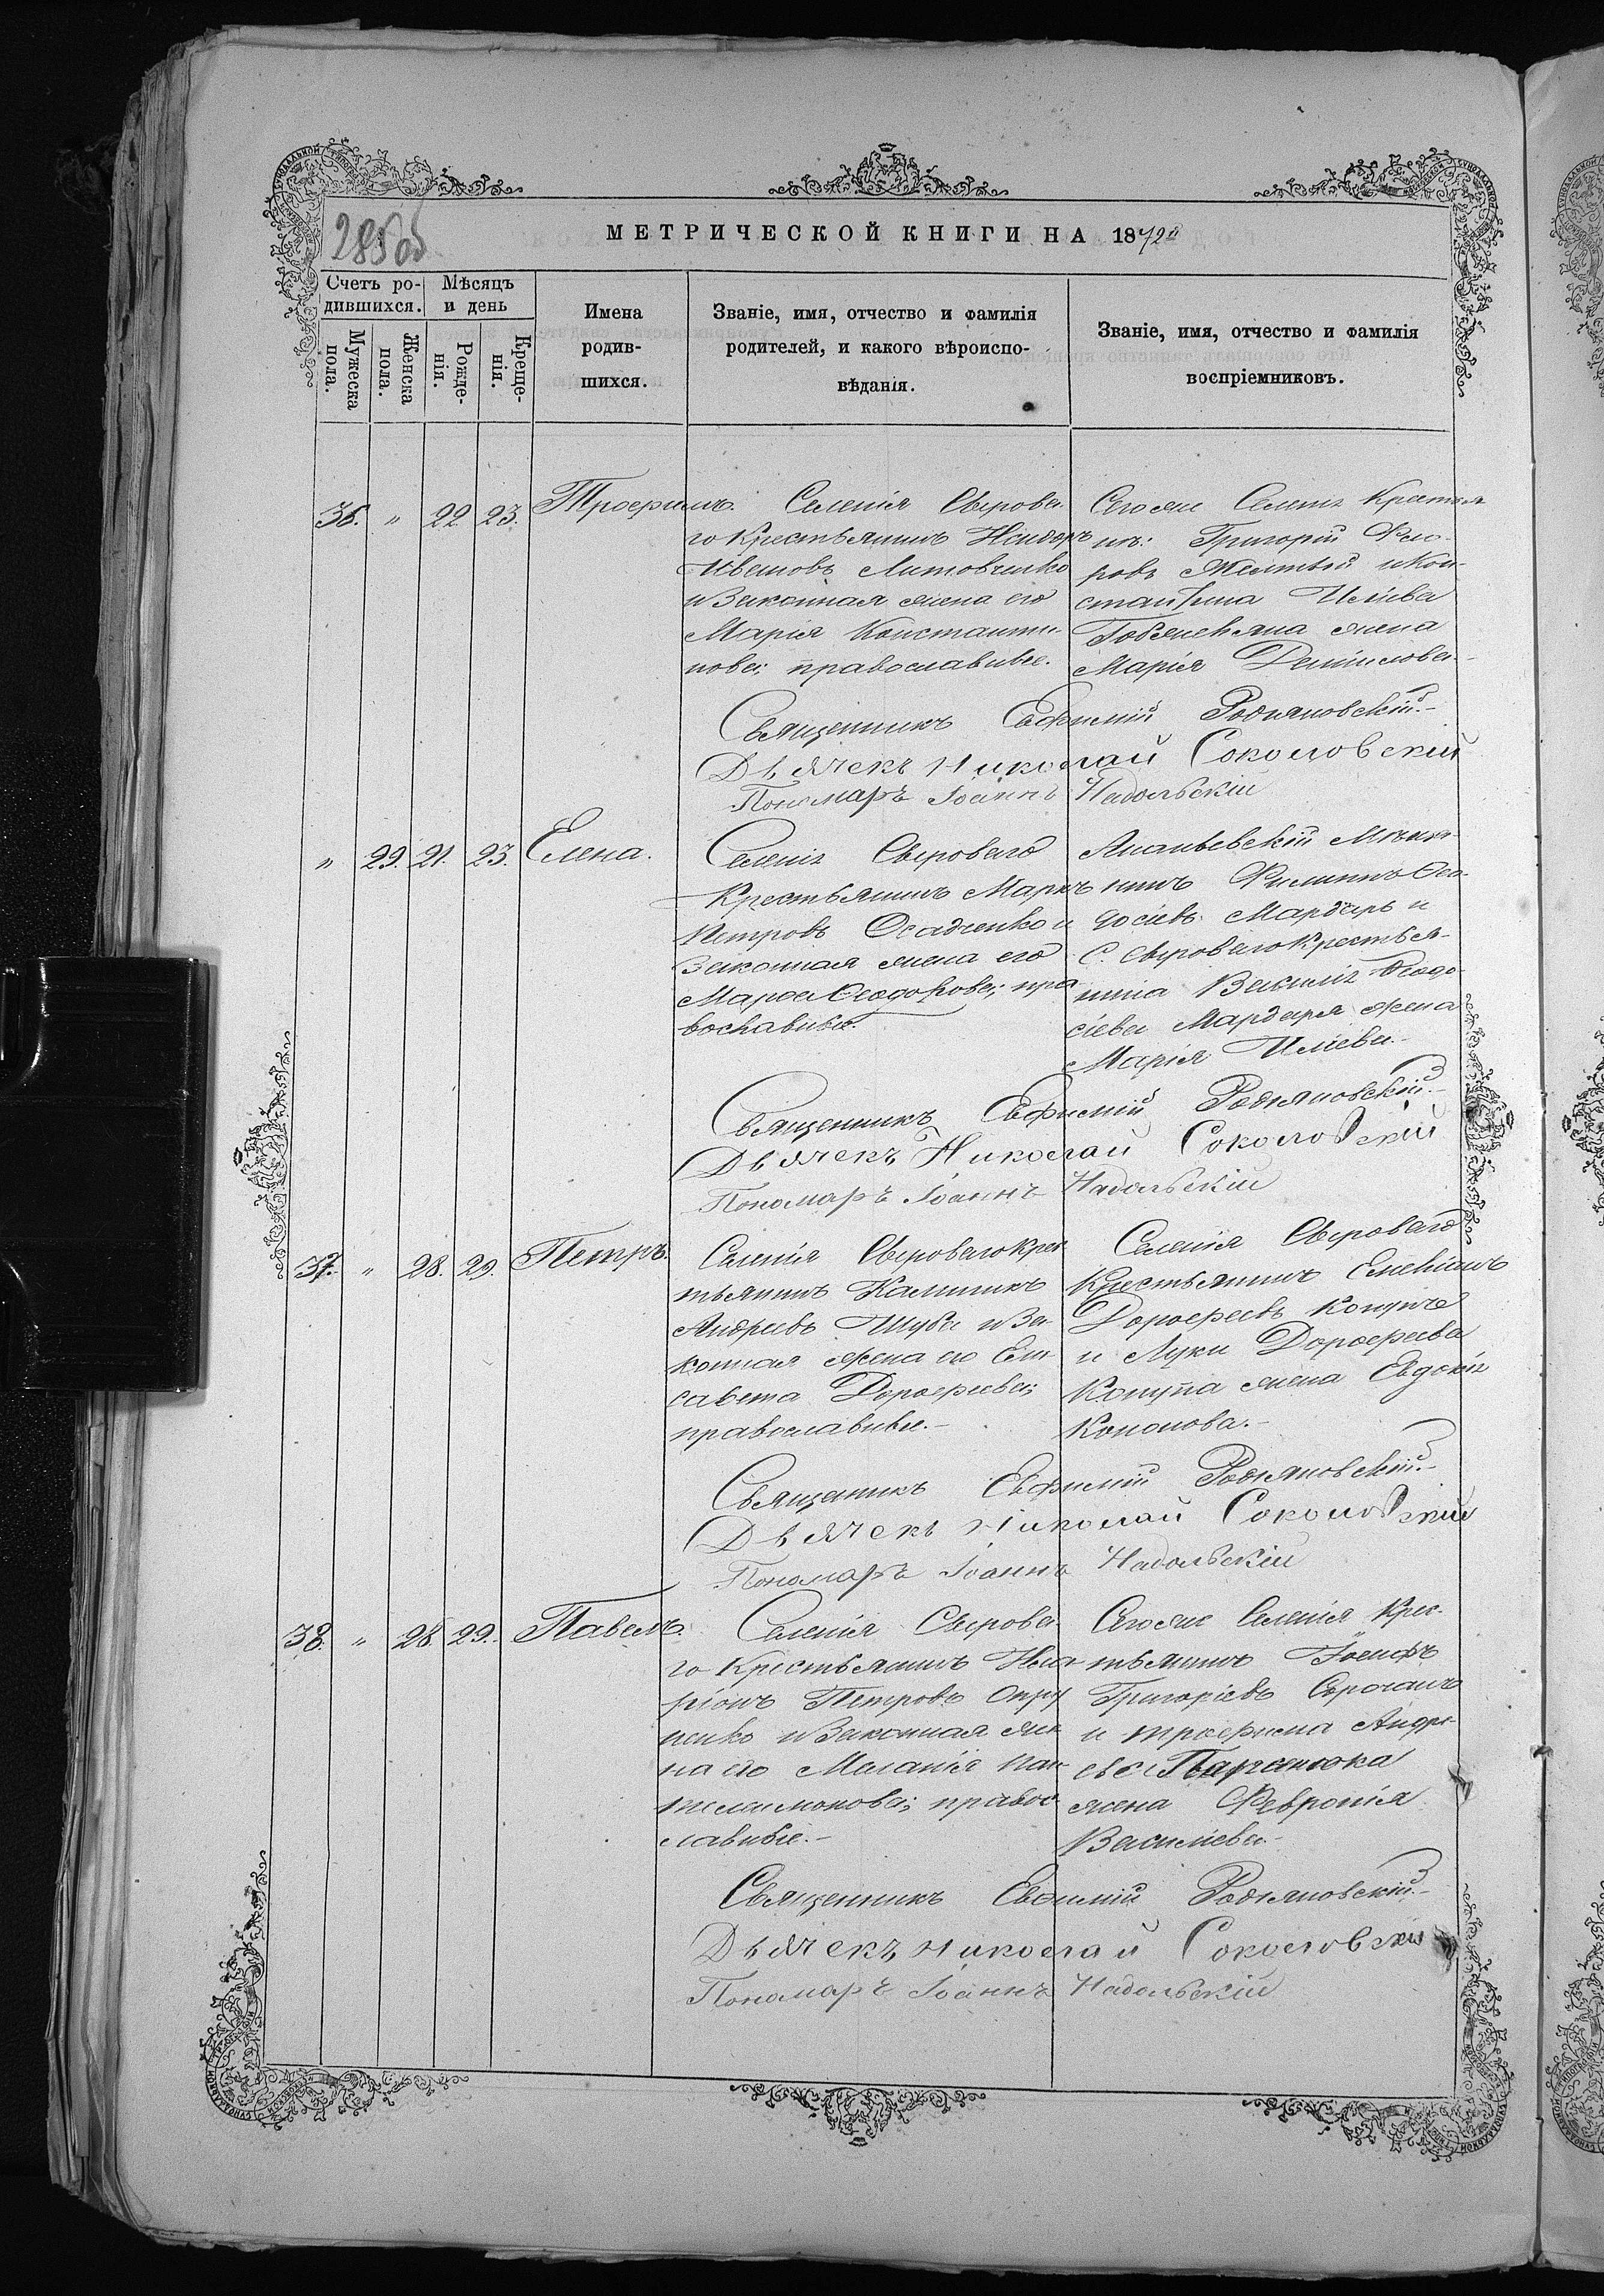 285об
МЕТРИЧЕСКОЙ КНИГИ НА 1872й
Счетъ ро-
дившихся.
Мужеска
пола.
Женска
пола.
Мѣсяцъ
и день
Рожде-
нія.
Креще-
нія.
Имена
родив-
шихся.
Званіе, имя, отчество и фамилія
родителей, и какого вѣроиспо-
вѣданія.
Званіе, имя, отчество и фамилія
воспріемниковъ.
36. " 22 23. Трофимъ.
Селенія Сырова-
го Крестьянинъ Исидоръ
Ивановъ Литовченко
и Законная жена его
Марія Константи-
нова; православные.
Тогоже Селенія Крестья
нъ: Григорій Фео-
ровъ Желтый и Кон-
стантина Иліева
жена
Марія Даниилова.
Священникъ Евфимій Родзяновскій.
Дьячекъ Николай Соколовскій
Пономаръ Іоаннъ Надольскій
" 29. 21. 23. Елена.
Селенія Сыроваго
Крестьянинъ Маркъ
Петровъ Осадченко и
Законная жена его
Марфа Феодорова; пра
вославные.
Ананьевскій Мѣща-
нинъ Филиппъ Фео-
досіевъ Мардарь и
С. Сыроваго Крестья-
нина Василія Феодо
сіева Мардаря жена
Марія Иліева.
Священникъ Евфимій Родзяновскій.
Дьячекъ Николай Соколовскій
Пономаръ Іоаннъ Надольскій
37. " 28. 29. Петръ.
Селенія Сыроваго Крес
тьянинъ Калинникъ
Андреевъ Шуба и За-
конная жена его Ели
савета Дорофеева;
православные.
Селенія Сыроваго
Крестьянинъ Емеліанъ
Дорофеевъ
и Луки Дорофеева
жена Евдокія
Кононова.
Священникъ Евфимій Родзяновскій.
Дьячекъ Николай Соколовскій
Пономаръ Іоаннъ Надольскій
38. " 28 29. Павелъ.
Селенія Сырова-
го Крестьянинъ Ила
ріонъ Петровъ Опру
ненко и Законная же
на его Меланія Пан
телимонова; правос
лавные.
Тогоже Селенія Крес-
тьянинъ Іосифъ
Григоріевъ Сорочанъ
и Трофима Андре-
ева
жена Февронія
Василіева.
Священникъ Евфимій Родзяновскій.
Дьячекъ Николай Соколовскій
Пономаръ Іоаннъ Надольскій